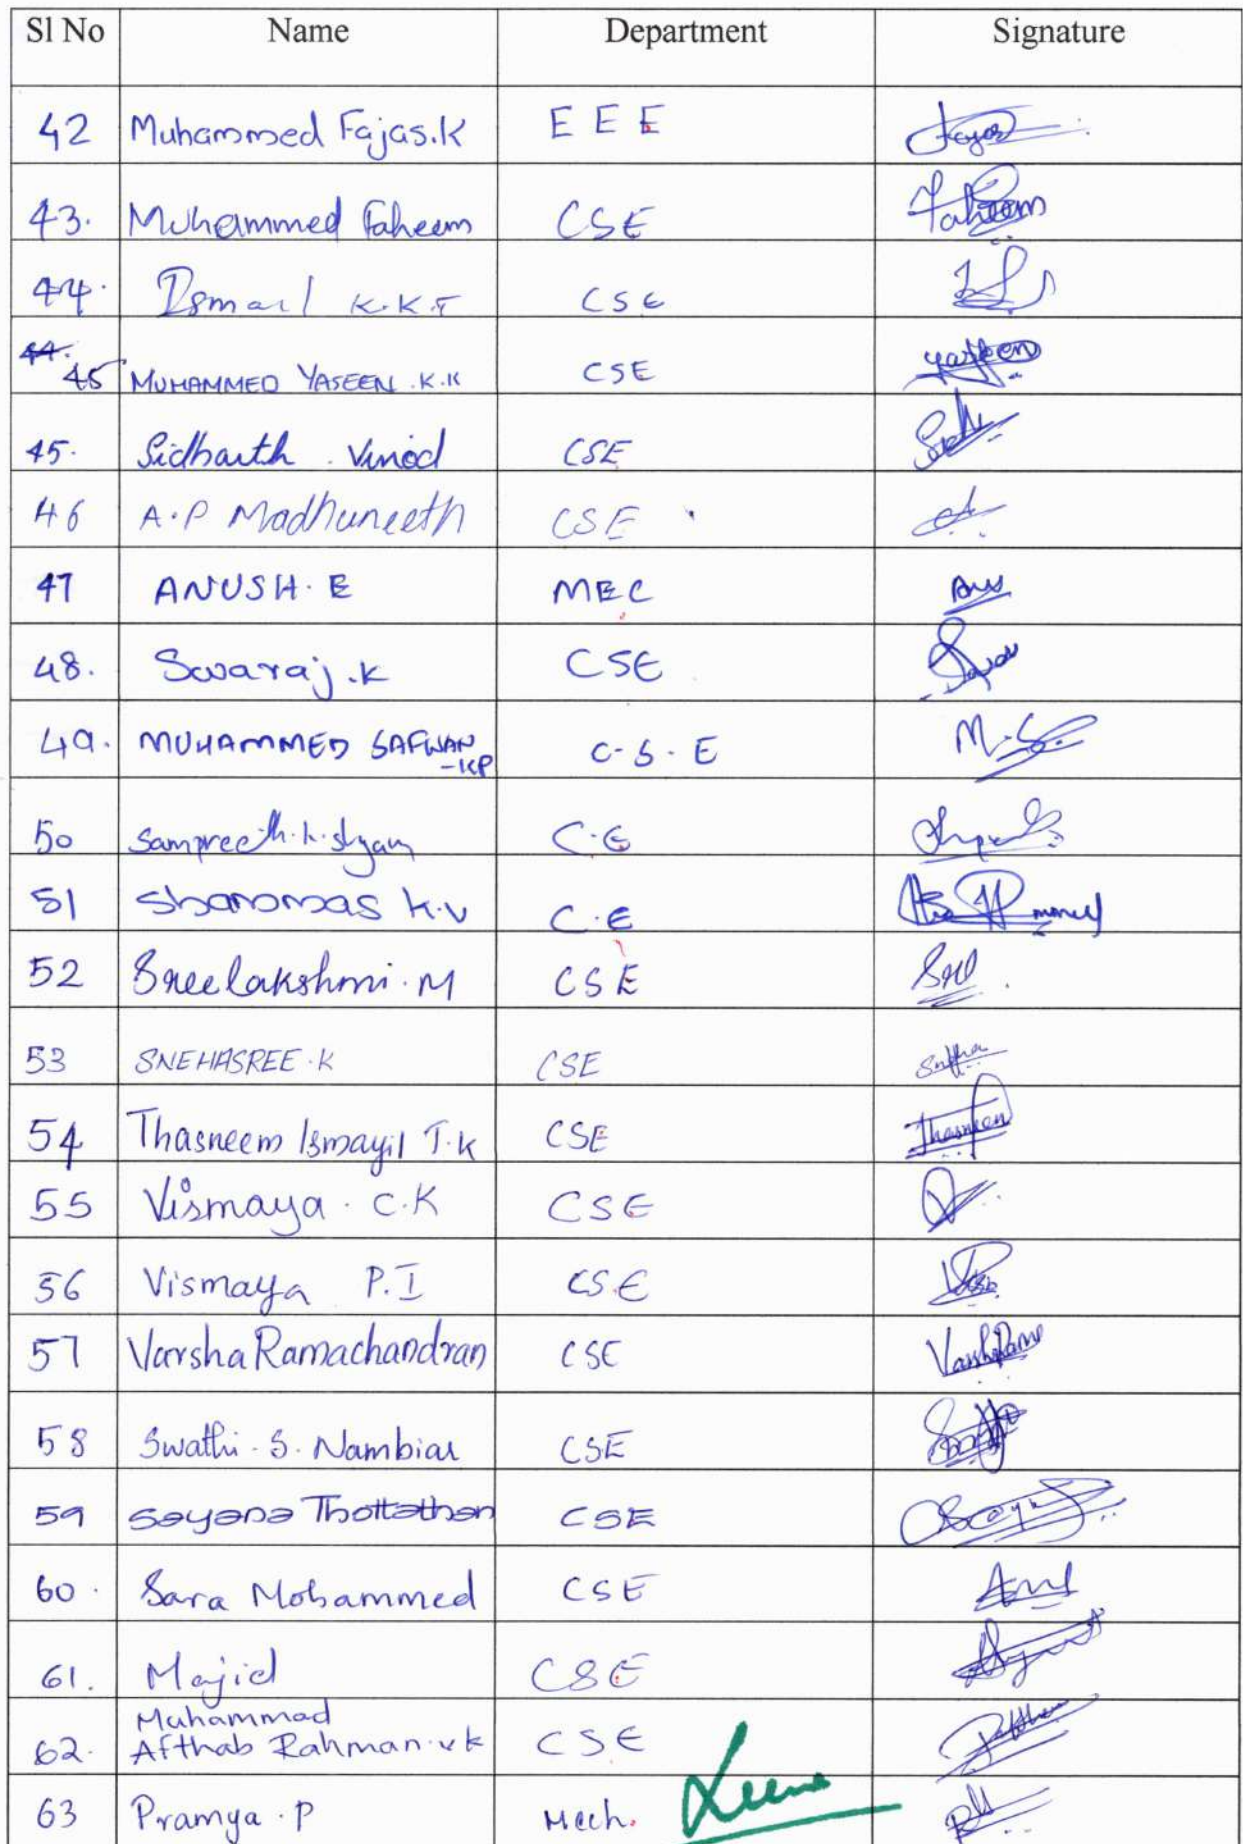 Sl No Name Department Signature
42 Muhammed Fajas.K E E E Fajas
43. Muhammed Faheem CSE Faheem
44. Ismail K.K.T CSE
44. 45 MUHAMMED YASEEN .K.K CSE yaseen
45. Sidharth . Vinod CSE
46 A.P Madhuneeth CSE
47 ANUSH. E MEC Anu
48. Swaraj .K CSE
49. MUHAMMED SAFWAN C-S-E M.S
-KP
50 Sampreeth.k.shyam C.E
51 Shanomas K.V C.E
52 Sreelakshmi.M CSE Sree
53 SNEHASREE.K CSE
54 Thasneem Ismayil T.K CSE Thasneem
55 Vismaya . C.K CSE
56 Vismaya P.I CSE
57 Varsha Ramachandran CSE
58 Swathi . S. Nambiar CSE
59 Sayana Thottathan CSE
60. Sara Mohammed CSE
61. Majid CSE
Muhammad
62. Afthab Rahman.vk CSE
63 Pramya . P Mech.